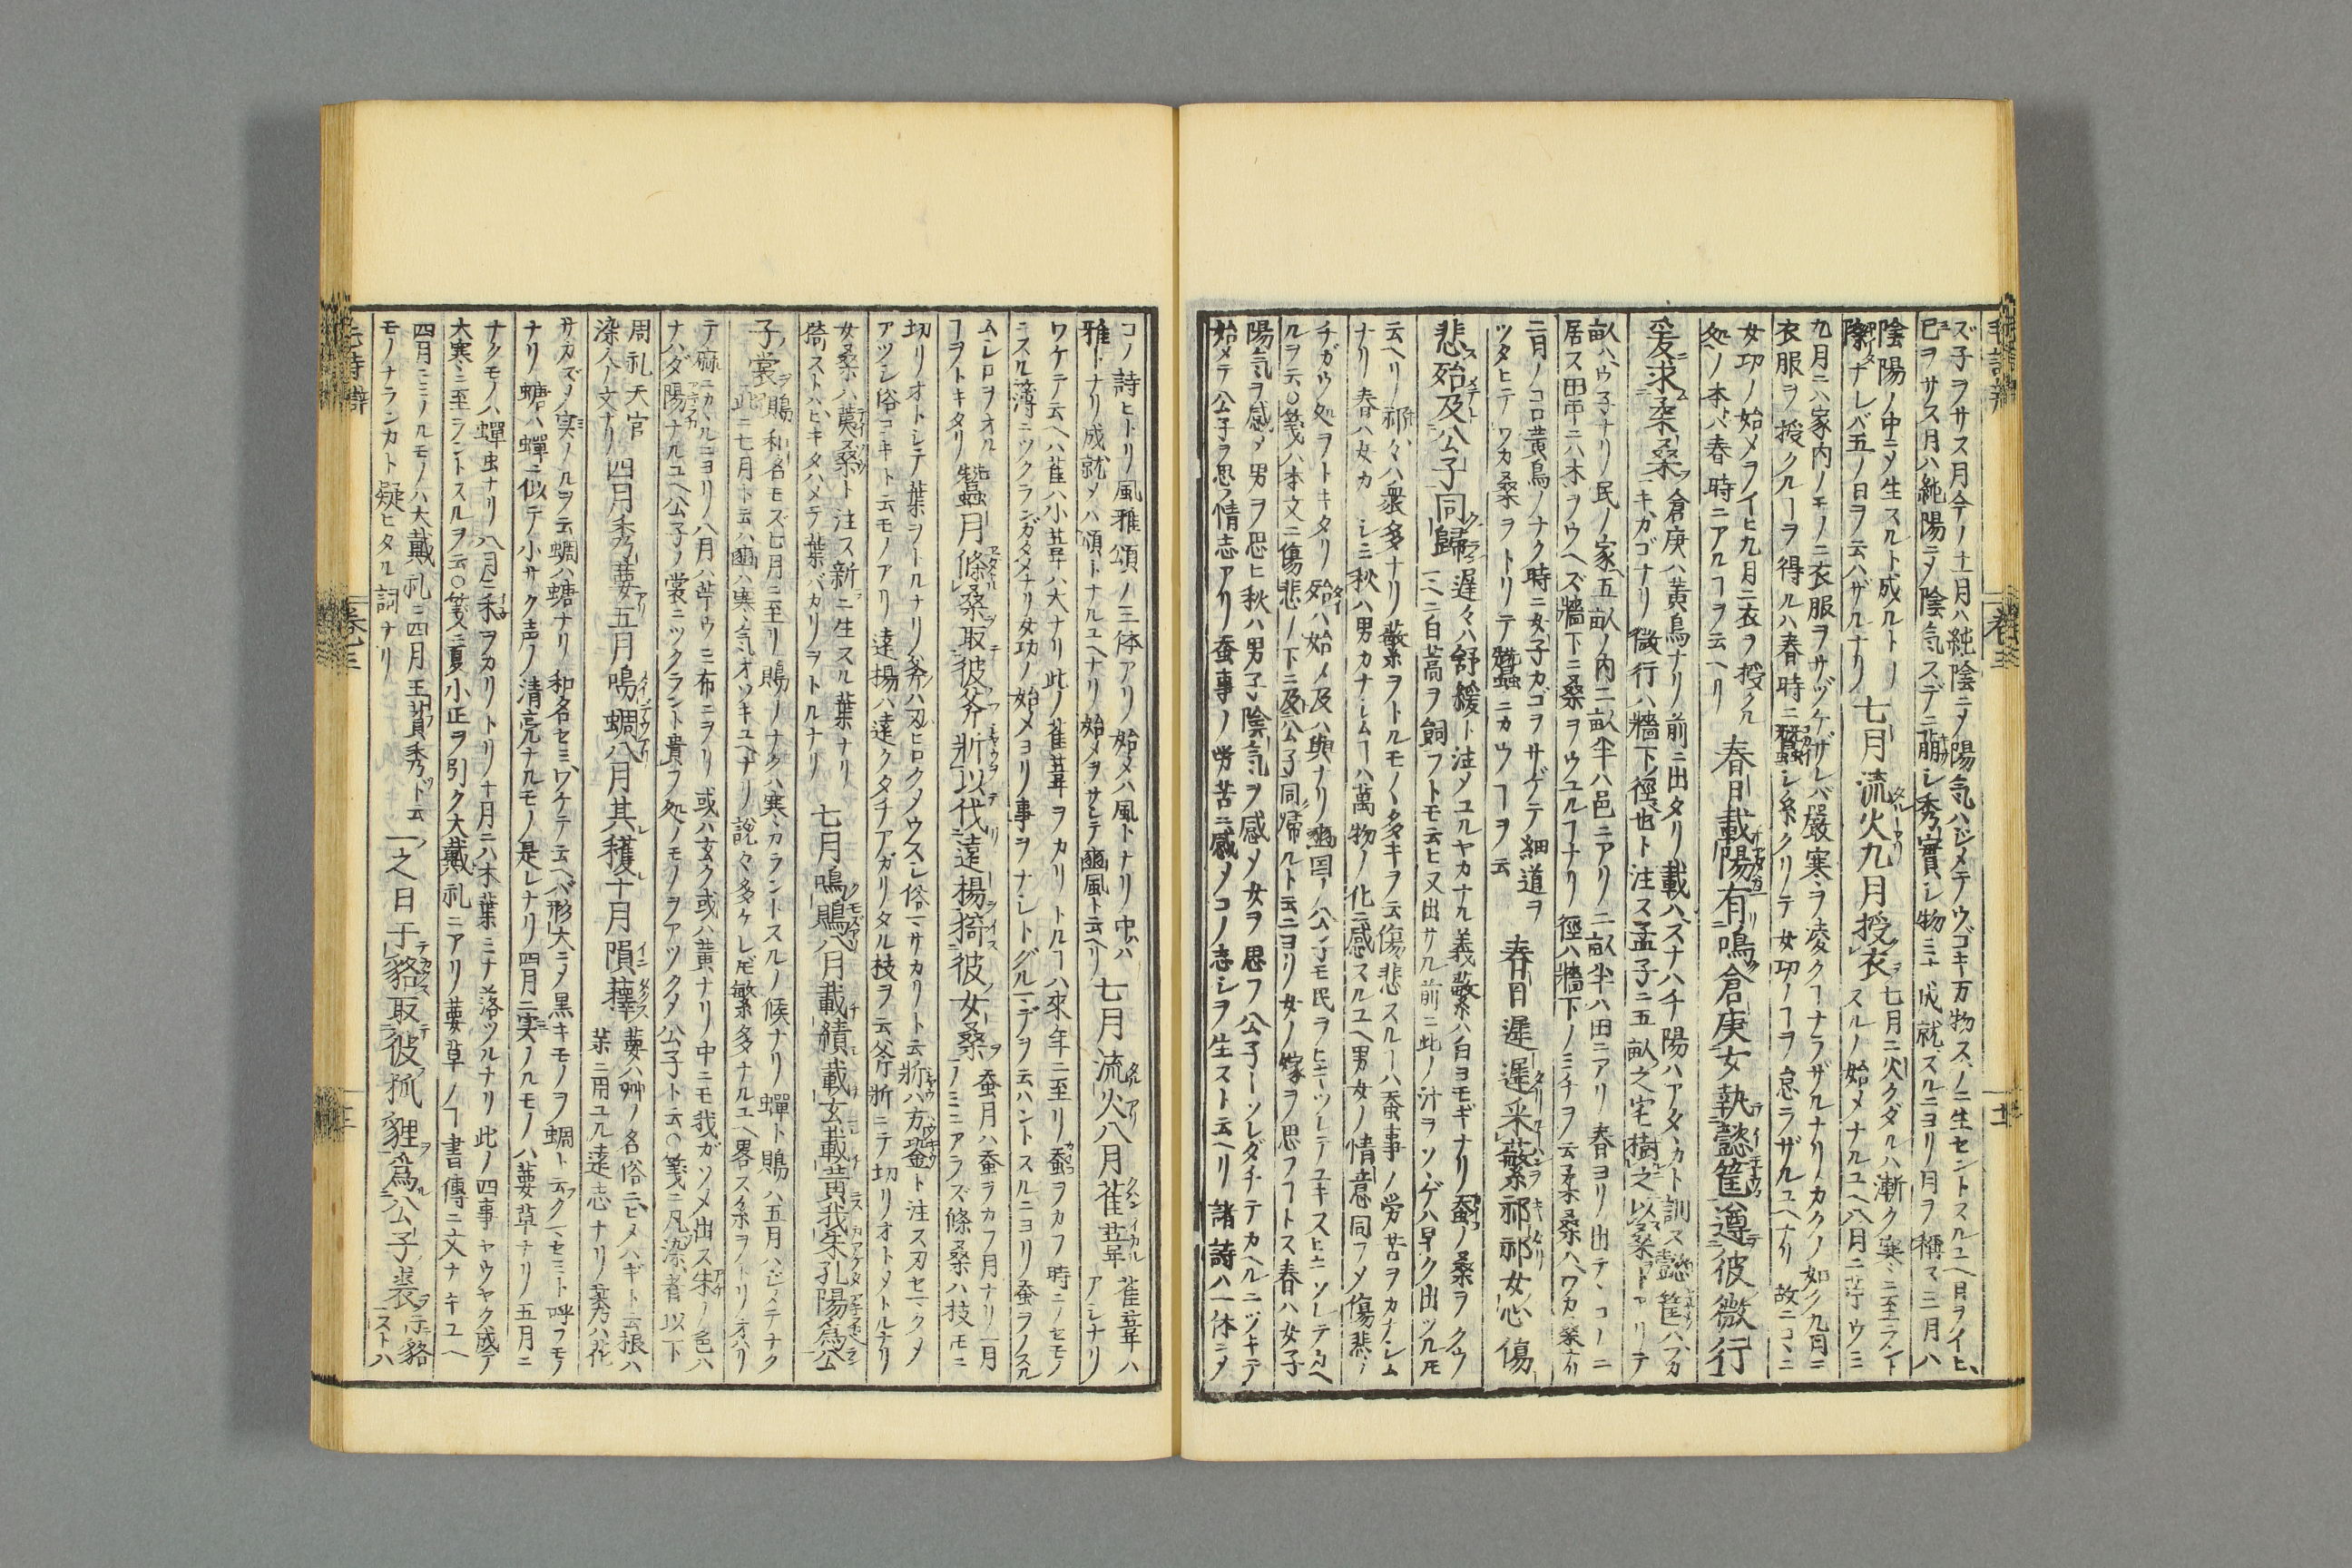 ズ子ヲサス月令ノ十一月ハ純陰ニメ陽気ハジメテウゴキ万物スヽノニ生セントスルユヘ月ヲイヒ、
巳ヲサス月ハ純陽ニメ陰気スデニ萠シ秀實シ物ミナ成就スルニヨリ月ヲ稱ス三月ハ
陰陽ノ中ニメ生スルト成ルトノ
際ナレバ五ノ日ヲ云ハザルナリ
七月流火九月授衣
七月ニ火クダルハ漸ク寒ニ至ラント
スルノ始メナルユヘ八月ニ苧ウミ
九月ニハ家内ノモノニ衣服ヲサヅケザレバ嚴寒ヲ凌クヿナラザルナリカクノ如ク九月ニ
衣服ヲ授クルヿヲ得ルハ春時ニ蠶シ糸クリテ女功ノヿヲ怠ラザルユヘナリ故ニコヽニ
女功ノ始メヲイヒ九月ニ衣ヲ授クル
処ノ本ハ春時ニアルヿヲ云ヘリ
春日載陽有鳴倉庚女執懿筐遵彼微行
爰求柔桑
倉庚ハ黄鳥ナリ前ニ出タリ載ハスナハチ陽ハアタヽカト訓ス懿筐ハフカ
キカゴナリ微行ハ牆下徑也ト注ス孟子ニ五畝之宅樹之以桑トアリテ
畝ハウ子ナリ民ノ家五畝ノ内二畝半ハ邑ニアリ二畝半ハ田ニアリ春ヨリ出テヽコヽニ
居ス田中ニハ木ヲウヘズ牆下ニ桑ヲウユルヿナリ徑ハ牆下ノミチヲ云柔桑ハワカ桑ナリ
二月ノコロ黄鳥ノナク時ニ女子カゴヲサゲテ細道ヲ
ツタヒテワカ桑ヲトリテ蠶ニカウヿヲ云
春日遲遲采蘩祁祁女心傷
悲殆及公子同歸
遲々ハ舒緩ト注メユルヤカナル義蘩ハ白ヨモギナリ蚕ノ桑ヲクウ
ヘニ白蒿ヲ飼フトモ云ヒ又出サル前ニ此ノ汁ヲソヽゲハ早ク出ツルモ
云ヘリ祁々ハ衆多ナリ蘩ヲトルモノヽ多キヲ云傷悲スルヿハ蚕事ノ労苦ヲカナシム
ナリ春ハ女カナシミ秋ハ男カナシムヿハ萬物ノ化ニ感スルユヘ男女ノ情意同フメ傷悲ノ
チガウ処ヲトキタリ殆ハ始メ及ハ與ナリ豳国ノ公子モ民ヲヒキツレテユキスヒニソレテカヘ
ルヲ云○箋ハ本文ニ傷悲ノ下ニ及公子同歸ルト云ニヨリ女ノ嫁ヲ思フヿトス春ハ女子
陽気ヲ感メ男ヲ思ヒ秋ハ男子陰気ヲ感メ女ヲ思フ公子ーソレダチテカヘルニツキテ
始メテ公子ヲ思フ情志アリ蚕事ノ労苦ニ感メコノ志シヲ生スト云ヘリ諸詩ハ一体ニメ
コノ詩ヒトリ風雅頌ノ三体アリ始メハ風トナリ中ハ
雅トナリ成就メハ頌トナルユヘナリ始メヲサシテ豳風ト云ヘリ
七月流火八月萑葦
萑葦ハ
アシナリ
ワケテ云ヘハ萑ハ小葦ハ大ナリ此ノ萑葦ヲカリトルヿハ來年ニ至リ蚕ヲカフ時ニノセモノ
ニスル薄ニツクランガタメナリ女功ノ始メヨリ事ヲナシトグルーデヲ云ハントスルニヨリ蚕ヲノスル
ムシロヲオル
ヿヲトキタリ
蠶月條桑取彼斧斨以伐遠揚猗彼女桑
蚕月ハ蚕ヲカフ月ナリ一月
ノミニアラズ條桑ハ枝モニ
切リオトシテ葉ヲトルナリ斧ハ刃ヒロクメウスシ俗ーサカリト云斨ハ方銎ト注ス刃セークメ
アツシ俗ヨキト云モノアリ遠揚ハ遠クタチアガリタル枝ヲ云斧斨ニテ切リオトメトルナリ
女桑ハ荑桑ト注ス新ニ生スル葉ナリ
猗ストハヒキタハメテ葉バカリヲトルナリ
七月鳴鵙八月載績載玄載黄我朱孔陽爲公
子裳
鵙和名モズ七月ニ至リ鵙ノナクハ寒カラントスルノ候ナリ蟬ト鵙ハ五月ハジメテナク
此ニ七月ト云ハ豳ハ寒気オソキユヘナリ説々多ケレ𪜈繁多ナルユヘ畧ス糸ヲトリオハリ
テ麻ニカヽルニヨリ八月ハ苧ウミ布ニヲリ或ハ玄ク或ハ黄ナリ中ニモ我ガソメ出ス朱ノ色ハ
ナハダ陽ナルユヘ公子ノ裳ニツクラント貴ヲ処ノモノヲアツクメ公子ト云○箋ニ凡染者以下
周礼天官
染人ノ文ナリ
四月秀葽五月鳴蜩八月其穫十月隕蘀
葽ハ艸ノ名俗ニヒメハギト云根ハ
薬ニ用ユル遠志ナリ秀ハ花
サカズメ実ノルヲ云蜩ハ螗ナリ和名セミワケテ云ヘバ形大ニメ黒キモノヲ蜩ト云クーセミト呼フモノ
ナリ螗ハ蟬ニ似テ小サク声ノ清亮ナルモノ是レナリ四月ニ実ノルモノハ葽草ナリ五月ニ
ナクモノハ蟬虫ナリ八月ニ禾ヲカリトリ十月ニハ木葉ミナ落ツルナリ此ノ四事ヤウヤク成テ
大寒ニ至ラントスルヲ云○箋ニ夏小正ヲ引ク大戴礼ニアリ葽草ノヿ書傳ニ文ナキユヘ
四月ニミノルモノハ大戴礼ニ四月王萯秀ト云
モノナランカト疑ヒタル詞ナリ
一之日于貉取彼狐貍爲公子裘
于貉
ニストハ